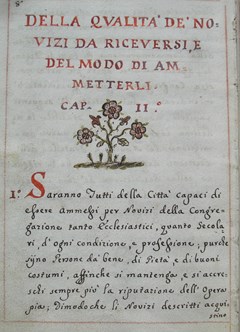 8
DELLA QVALITA' DE' NO-
VIZI DA RICEVERSI, E
DEL MODO DI AM-
METTERLI.
CAP. II.°
I.° Saranno Tutti della Città Capaci di
essere Ammessi per Novizi della Congre-
gazione tanto Ecclesiastici, quanto Secola-
ri, d'ogni Condizione, e professione; purche
sijno Persone da bene, di Pietà, e di buoni
costumi, affinche si mantenga, e si accre-
schi sempre più la riputazione dell'Opera
pia; Dimodoche li Novizi descritti acqui-
sino